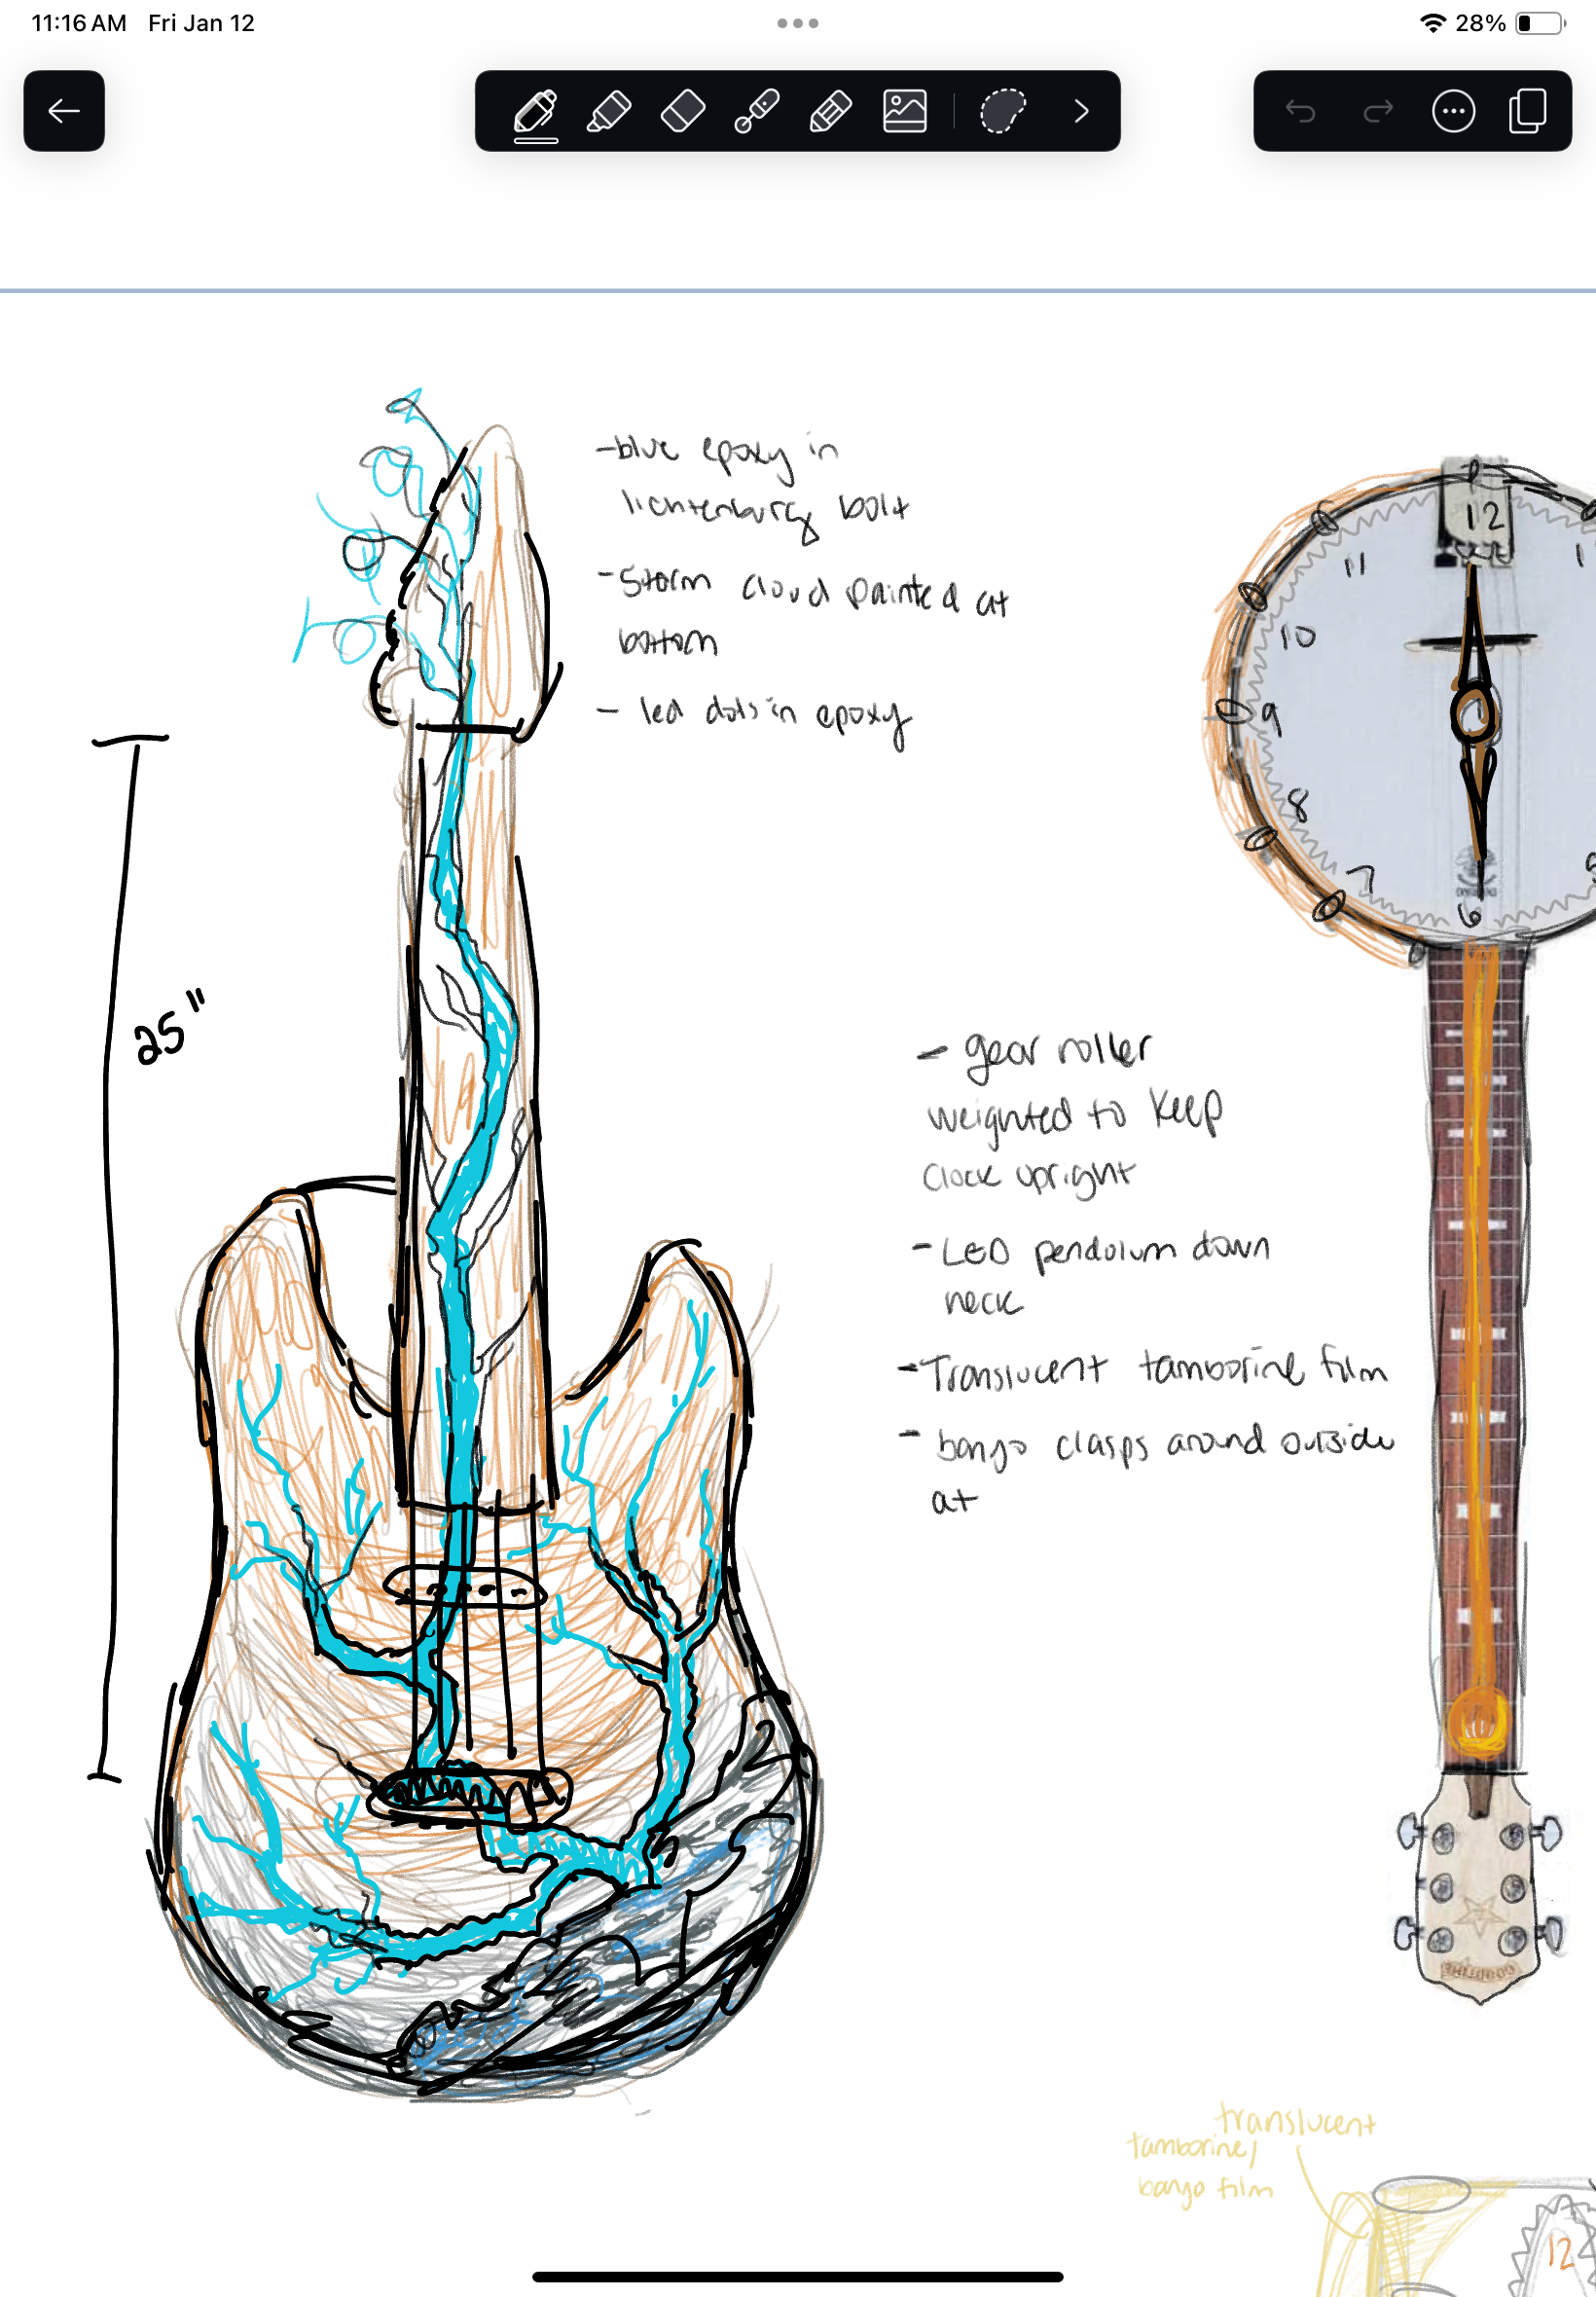 11:16 AM Fri Jan 12
28%
-blue epoxy in
lichtenburg bolt
-storm cloud painted at
bottom
- led dots in epoxy
25"
12
11
1
10
9
8
7
6
5
- gear roller
weighted to keep
clock upright
- LED pendolum down
neck
-Translucent tamborine film
- banjo clasps around outside
at
translucent
tamborine/
banjo film
12